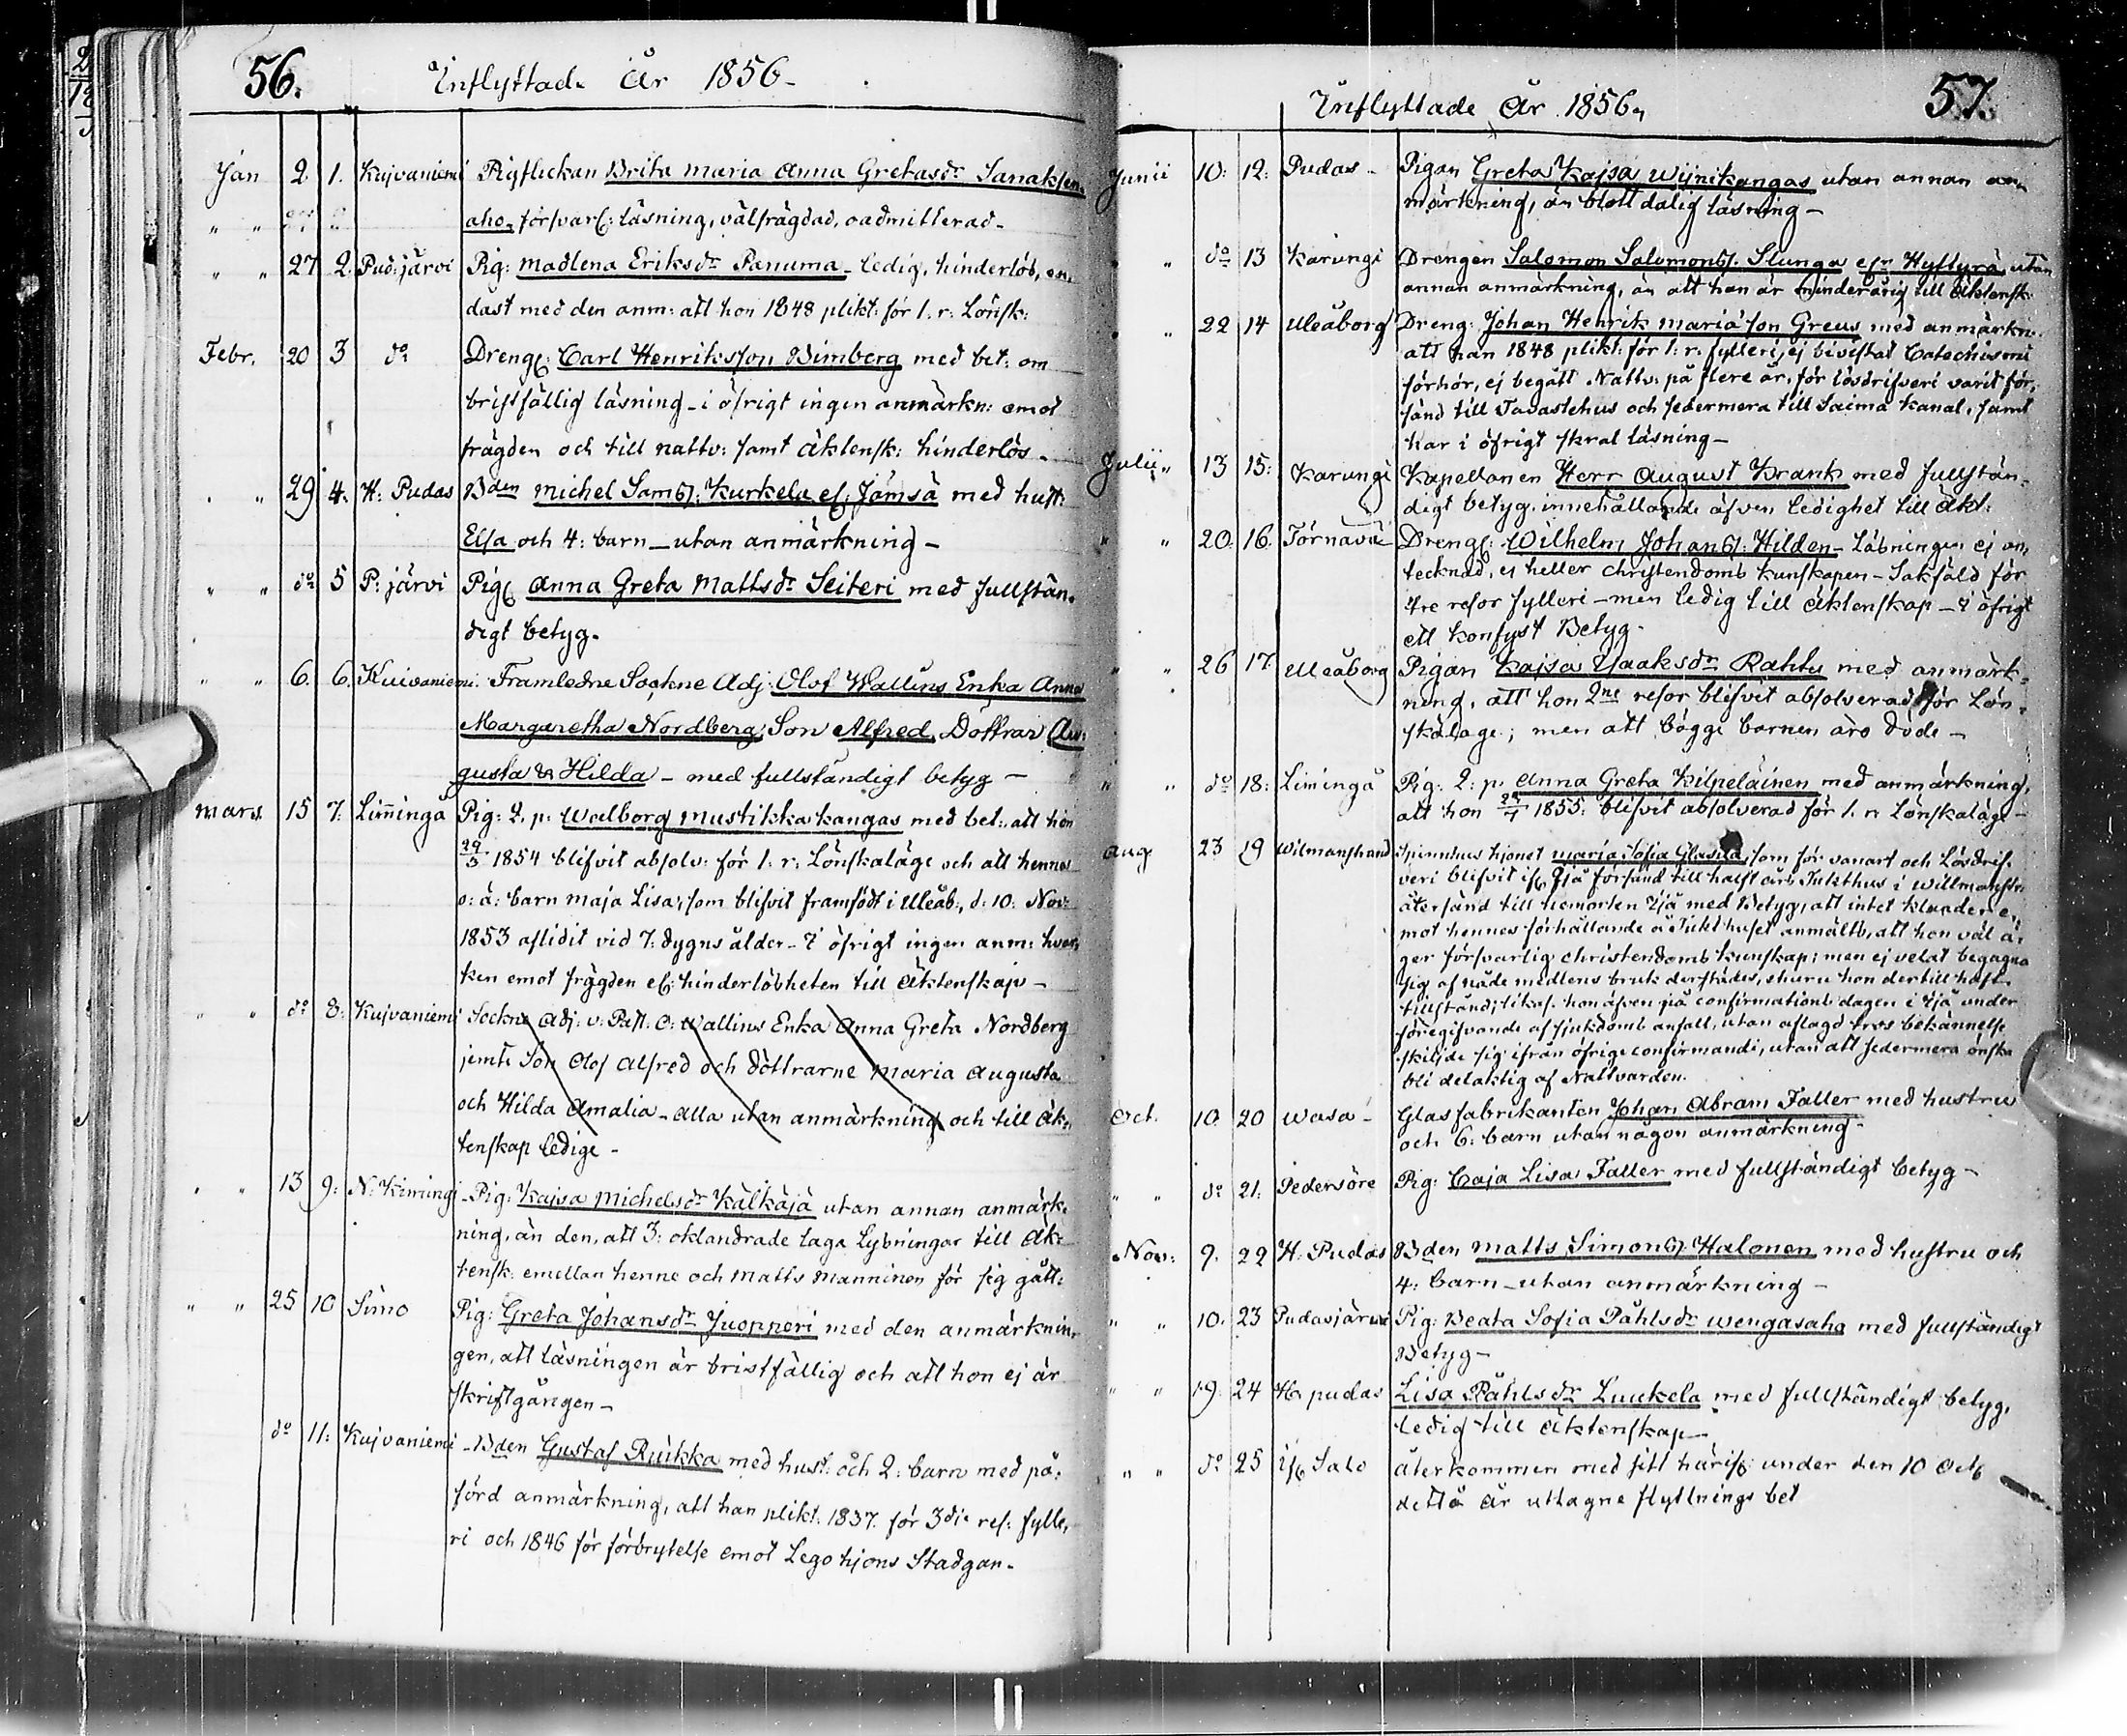 56.
Inflyttade År 1856-
Jan 2. 1. Kujvaniemi Pigflickan Brita Maria Anna Gretasdr Sanaksen-
aho, försvarl: läsning, välfrägdad, oadmitterad-
" " 27 2. Pud:järvi Pig: Madlena Eriksdr Panuma - ledig, hinderlös, en-
dast med den anm: att hon 1848 plikt: för 1. r: Lönsk:
Febr. 20 3 do Dreng: Carl Henriksson Bimberg med bet: om
bristfällig läsning - i öfrigt ingen anmärkn: emot
frägden och till nattv: samt äktensk: hinderlös-
" " 29 4. H: Pudas Bden Michel Sams: Kurkela el: Jämsä med hust:
Elsa och 4: barn - utan anmärkning -
" " do 5 P: järvi Pig: Anna Greta Mattsdr Seiteri med fullstän-
digt betyg.
" " 6. 6. Kuivaniemi. Framledne Sockne Adj: Olof Wallins Enka Anna
Margaretha Nordberg, Son Alfred, Döttrar Au-
gusta & Hilda - med fullständigt betyg -
Mars 15 7. Limingå Pig: 2. p. Walborg Mustikkakangas med bet: att hon
1854 blifvit absolv: för 1: r: Lönskaläge och att hennes
o: ä: barn Maja Lisa, som blifvit framfödt i Uleåb:, d: 10: Nov:
1853 aflidit vid 7: dygns ålder - I öfrigt ingen anm: hvar-
ken emot frägden el: hinderlösheten till äktenskap -
" " do 8: Kujvaniemi Sockne Adj: v: Past: O: Wallins Enka Anna Greta Nordberg
jemte Son Olof Alfred och döttrarne Maria Augusta
och Hilda Amalia - alla utan anmärkning och till äk-
tenskap ledige -
" " 13 9: N: Kiming - Pig: Kajsa Michelsdr Kälkäjä utan annan anmärk-
ning, än den, att 3: oklandrade laga Lysningar till äk-
tensk: emellan henne och Matts Manninen för sig gått:
" " 25 10 Simo Pig: Greta Johansdr Juopperi med den anmärknin-
gen, att läsningen är bristfällig och att hon ej är
skriftgången -
do 11: Kujvaniemi - Bden Gustaf Ruikka med hust: och 2: barn med på-
förd anmärkning, att han plikt: 1837. för 3die res: fylle-
ri och 1846 för förbrytelse emot Legohjons Stadgan -
57.
Inflyttade År 1856,
Junii 10: 12: Pudas - Pigan Greta Kajsa Wijnikangas utan annan an-
märkning, än blott dålig läsning -
" " do 13 Karungi Drengen Salomon Salomons: Slunga el: Hyttyrä, utan
annan anmärkning, än att han är minderårig till äktensk:
" " 22 14 Uleåborg Dreng: Johan Henrik Mariason Greus med anmärkn:
att han 1848 plikt: för 1: r: fylleri, ej bivistat Catechismi
förhör, ej begått Nattv: på flere år, för lösdrifveri varit för-
sänd till Tavastehus och sedermera till Saima Kanal, samt
har i öfrigt skral läsning -
Julii " 13 15: Karungi Kapellanen Herr August Krank med fullstän-
digt betyg, innehållande äfven ledighet till äkt:
" " 20. 16. Törnävä Dreng: Wilhelm Johans: Hilden - Läsningen ej an-
tecknad, ej heller christendoms kunskapen - Sakfäld för
tre resor fylleri - men ledig till äktenskap - I öfrigt
ett konfyst Betyg.
" " 26 17. Uleåborg Pigan Kajsa Isaksdr Rahtu med anmärk-
ning, att hon 2ne resor blifvit absolverad för Lön-
skaläge; men att bägge barnen äro döde -
" " do 18: Limingå Pig: 2: p. Anna Greta Kilpeläinen med anmärkning,
att hon 1855: blifvit absolverad för 1. r. Lönskaläge -
Aug 23 19 Wilmanstrand Spinnhus hjonet Maria Sofia Glasila, som för vanart och Lösdrif-
veri blifvit ifr: Ijå försänd till halft års Tukthus i Willmanstr:
återsänd till hemorten Ijå med Betyg, att intet klander e-
mot hennes förhållande å Tukthuset anmälts, att hon väl ä-
ger försvarlig christendoms kunskap; men ej velat begagna
sig af nåde medlens bruk derstädes, ehuru hon dertill haft
tillstånd; likas: hon äfven på confirmations dagen i Ijå under
föregifvande af sjukdoms anfall, utan aflagd tros bekännelse
skiljde sig ifrån öfrige confirmandi, utan att sedermera önska
bli delaktig af Nattvarden.
Oct. 10. 20 Wasa - Glasfabrikanten Johan Abram Faller med hustru
och 6: barn utan någon anmärkning -
" " do 21: Pedersöre Pig: Caja Lisa Faller med fullständigt betyg -
Nov: 9. 22 H: Pudas Bden Matts Simons: Halonen med hustru och
4: barn - utan anmärkning -
" " 10. 23 Pudasjärvi Pig: Beata Sofia Påhlsdr Wengasaho med fullständigt
Betyg -
" " 19. 24 H: pudas Lisa Påhlsdr Luukela med fullständigt betyg,
ledig till äktenskap -
" " do 25 ifr Salo återkommen med sitt härifr: under den 10 Oct:
detta år uttagne flyttnings bet